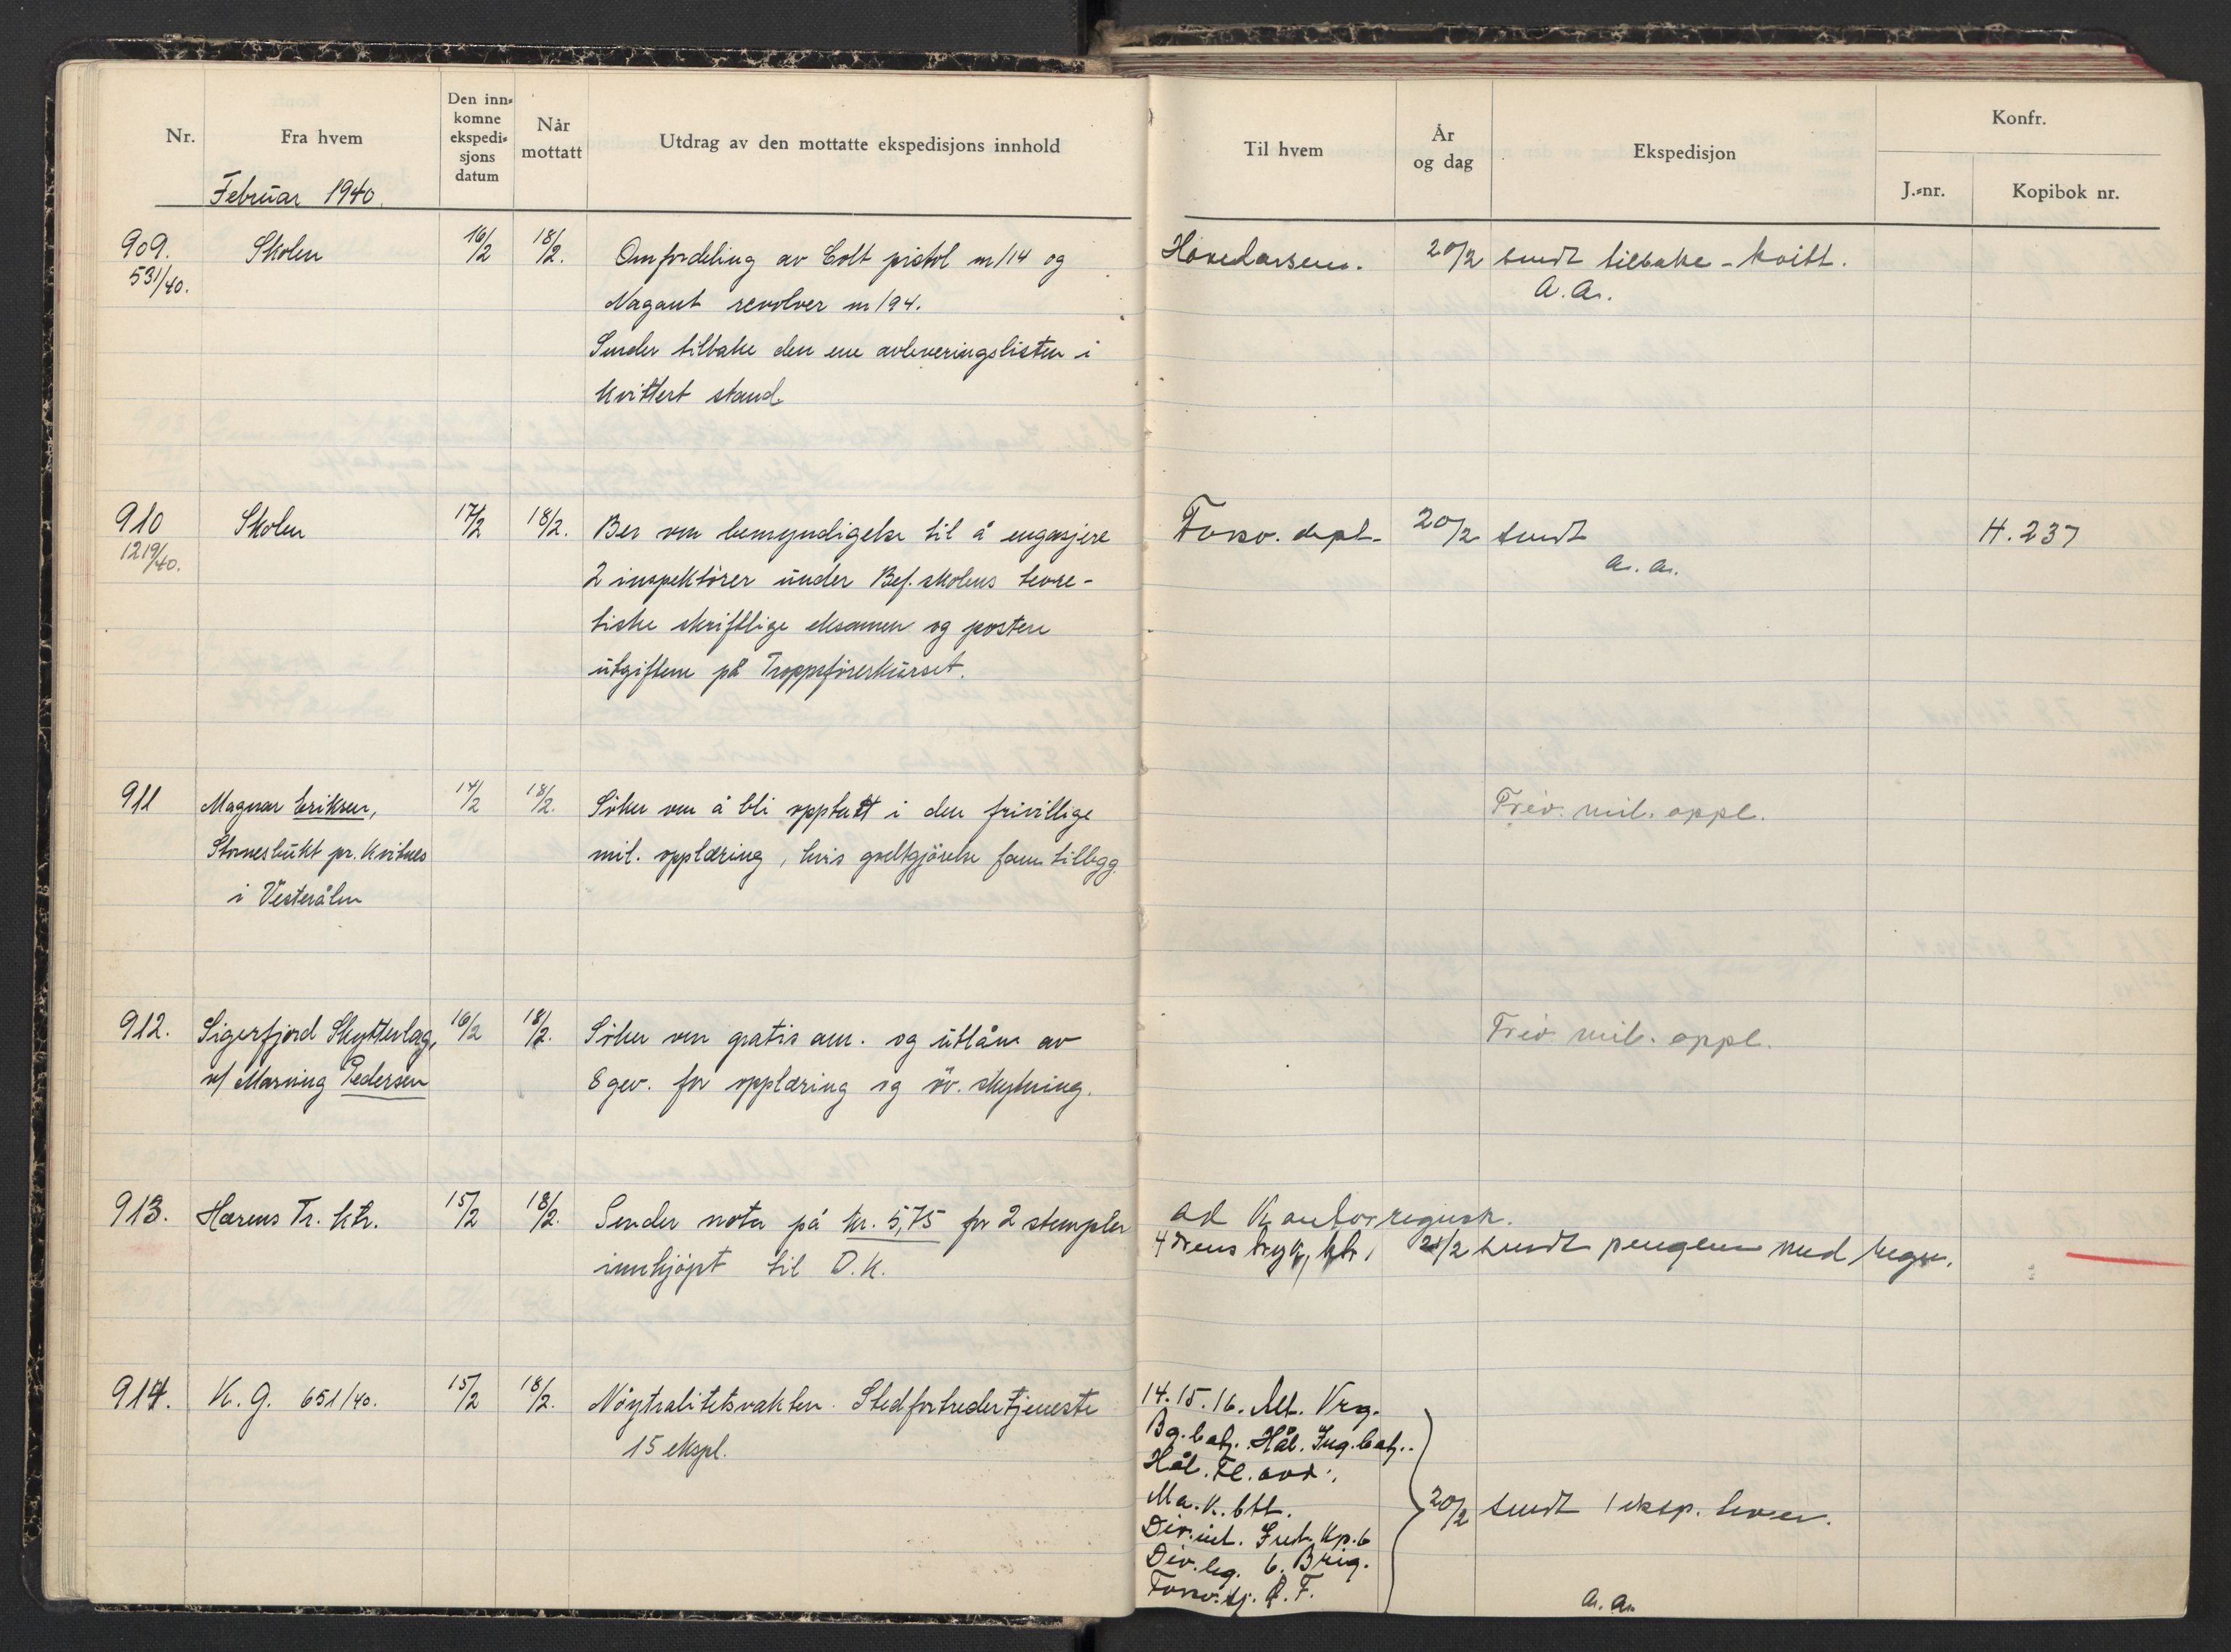 Nr.
Fra hvem
Den inn-
komne
ekspedi-
sjons
datum
Når
mottatt
Utdrag av den mottatte ekspedisjons innhold
Til hvem
År
og dag
Ekspedisjon
Konfr.
J.-nr.
Kopibok nr.
Februar 1940.
909. Skolen 16/2 18/2. Omfordeling av Colt pistol m/14 og
531/40.
Nagant revolver m/94.
Sender tilbake den ene avleveringslisten i
kvittert stand.
20/2 sendt tilbake - kvitt.
A.A.
910 Skolen 17/2 18/2. Ber om bemyndigelse til å engasjere
1219/40.
2 inspektörer under Bef.skolens teore-
tiske skriftlige eksamen og postere
utgiftene på Troppsförerkurset.
Forsv. dept. 20/2 sendt H. 237
A. A.
911 Magnar Eriksen, 14/2 18/2. Söker om å bli opptatt i den frivillige
Stornesbukt pr. Kvitnes mil. opplæring, hvis godtgjörelse fam.tillegg.
i Vesterålen
Friv. mil. oppl.
912. Sigerfjord Skytterlag, 16/2 18/2. Söker om gratis am. og utlån av
v/ Marning Pedersen 8 gev. for opplæring og öv. skytning.
Friv. mil. oppl.
913. Hærens Tr. ktr. 15/2 18/2. Sender nota på kr. 5,75 for 2 stempler
innkjöpt til D.K.
ad Kontorregnsk.
sendt pengene med regn.
914. K. G. 651/40. 15/2 18/2. Nöytralitetsvakten. Stedfortredertjeneste
15 ekspl.
14. 15. 16. Alt. Vrg.
Bg.batj. Hål. Ing.batj..
Hål. Fl. avd.
Ma. K. btl.
Div.int. Kp. 6
Div.leg. 6. Brig.
20/2 sendt 1 eksp. hver.
A. A.